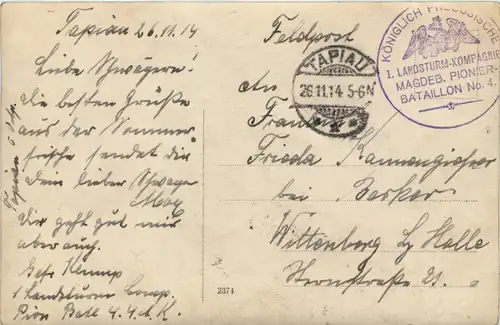 Tapiau 26.11.14
Liebe Schwägerin
die besten Grüße
aus der Sommer
frische sendet dir
Dein lieber Schwager
Max
Dir geht gut mir
aber auch.
Gefr Klemp
1 Landsturm Comp.
Pion Batl 4. 4. A. K.
Tapiau
Feldpost
TAPIAU
26.11.14. 5-6N
KÖNIGLICH PREUSSISCHE
1. LANDSTURM-KOMPAGNIE
MAGDEB. PIONIER-
BATAILLON No. 4.
An
Frau
Frieda Kannengießer
bei Becker
Wittenberg Bz Halle
Sternstraße 21.
2374